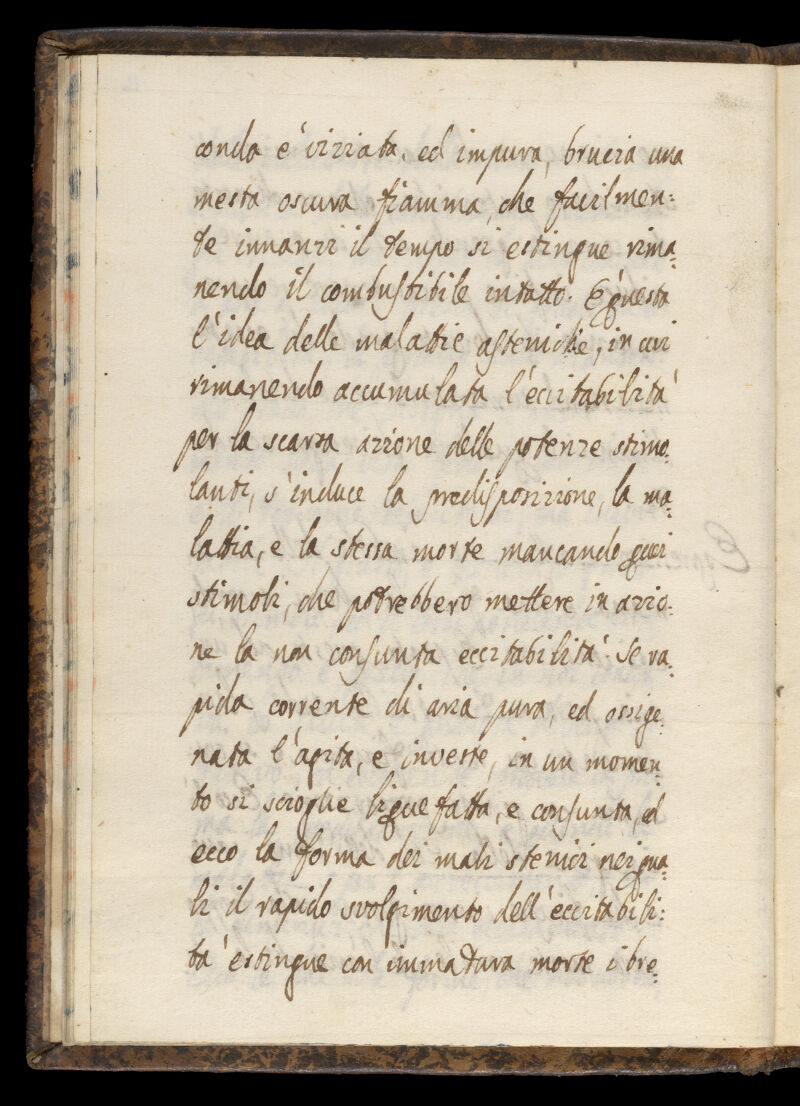 conda è viziata, ed impura, brucia una
mesta oscura fiamma, che facilmen:
te innanzi il tempo si estingue rima:
nendo il combustibile intatto. E' questa
l'idea delle malattie asteniche, in cui
rimanendo accumulata l'eccitabilità
per la scarsa azione delle potenze stimo:
lanti, s'induce la predisposizione, la ma:
lattia, e la stessa morte mancando quei
stimoli, che potrebbero mettere in azio:
ne la non consunta eccitabilità. Se ra:
pida corrente di aria pura, ed ossige:
nata l'agita, e investe, in un momen:
to si scioglie liquefatta, e consunta, ed
ecco la forma dei mali stenici nei qua:
li il rapido svolgimento dell'eccitabili:
tà estingue con immatura morte i bre: